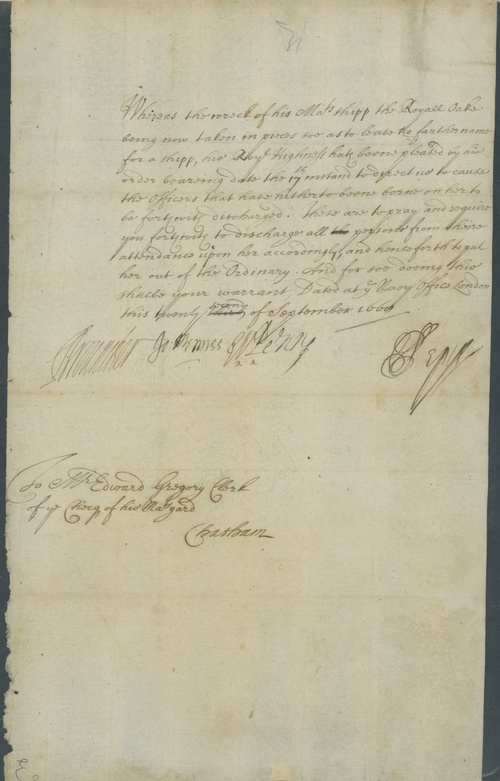 Whereas the wreck of his Mats shipp the Royall Oake
being now taken in pieces soe as to leave no farther name
for a shipp, his Royll Highness hath beene pleased by an
order beareing date the 17th instand to direct us to cause
the Officers that have hitherto beene borne on her to
be forthwith discharged. These are to pray and require
you forthwith to discharge all persons from theire
attendance upon her accordingly, and henceforth to put
her out of the Ordinary. And for soe doeing this
shalbe your warrant Dated at ye Navy Office London
this twenty second of September 1669
Brouncker Jo Mennes W Penn
SPepys
To Mr Edward Gregory Clerk
of ye Cheq of his Mats yard
Chatham